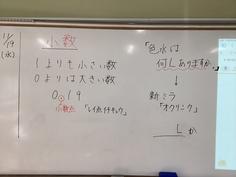 11/19
(水)
小数
1よりも小さい数
0よりは大きい数
0.19
小数点
「レイ点イチキュウ」
「色水は
何Lありますか。」
↓
「オクリンク」
Lか